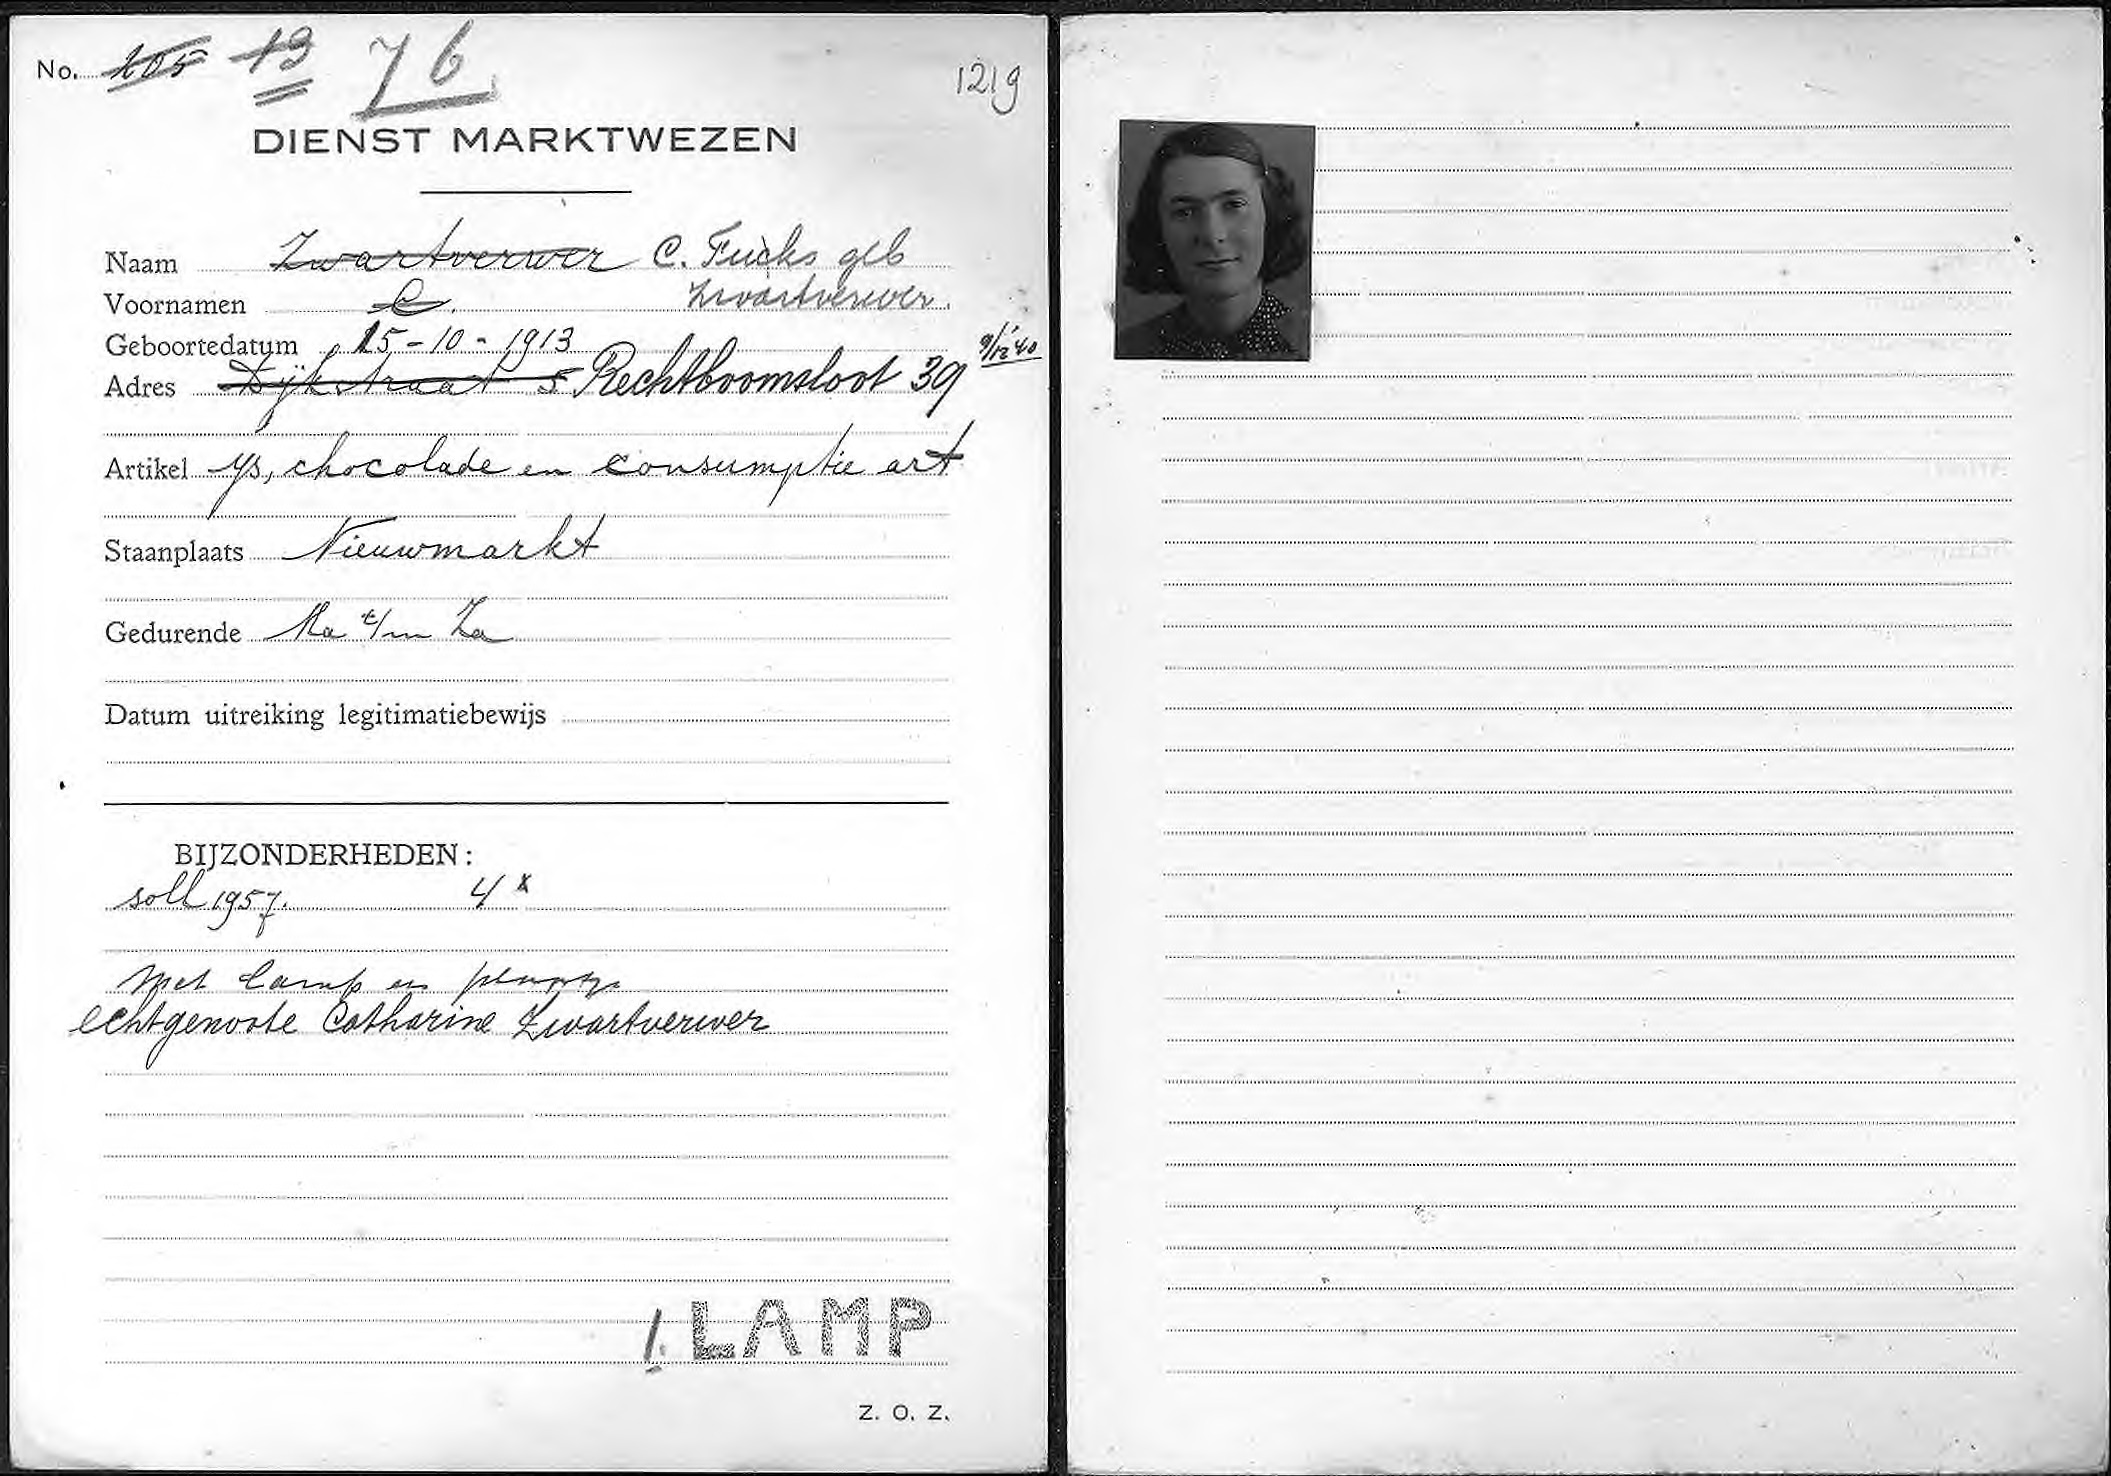 No. 105 13 76
1219
DIENST MARKTWEZEN
Naam Zwartverwer C. Fuchs geb
Voornamen C. Zwartverwer.
Geboortedatum 15-10-1913
9/12'40
Adres Dijkstraat 5 Rechtboomsloot 39
Artikel ys, chocolade en consumptie art
Staanplaats Nieuwmarkt
Gedurende Ma t/m Za
Datum uitreiking legitimatiebewijs
BIJZONDERHEDEN:
soll 1957. 4x
Met lamp en
echtgenoote Catharine Zwartverwer
1. LAMP
Z. O. Z.